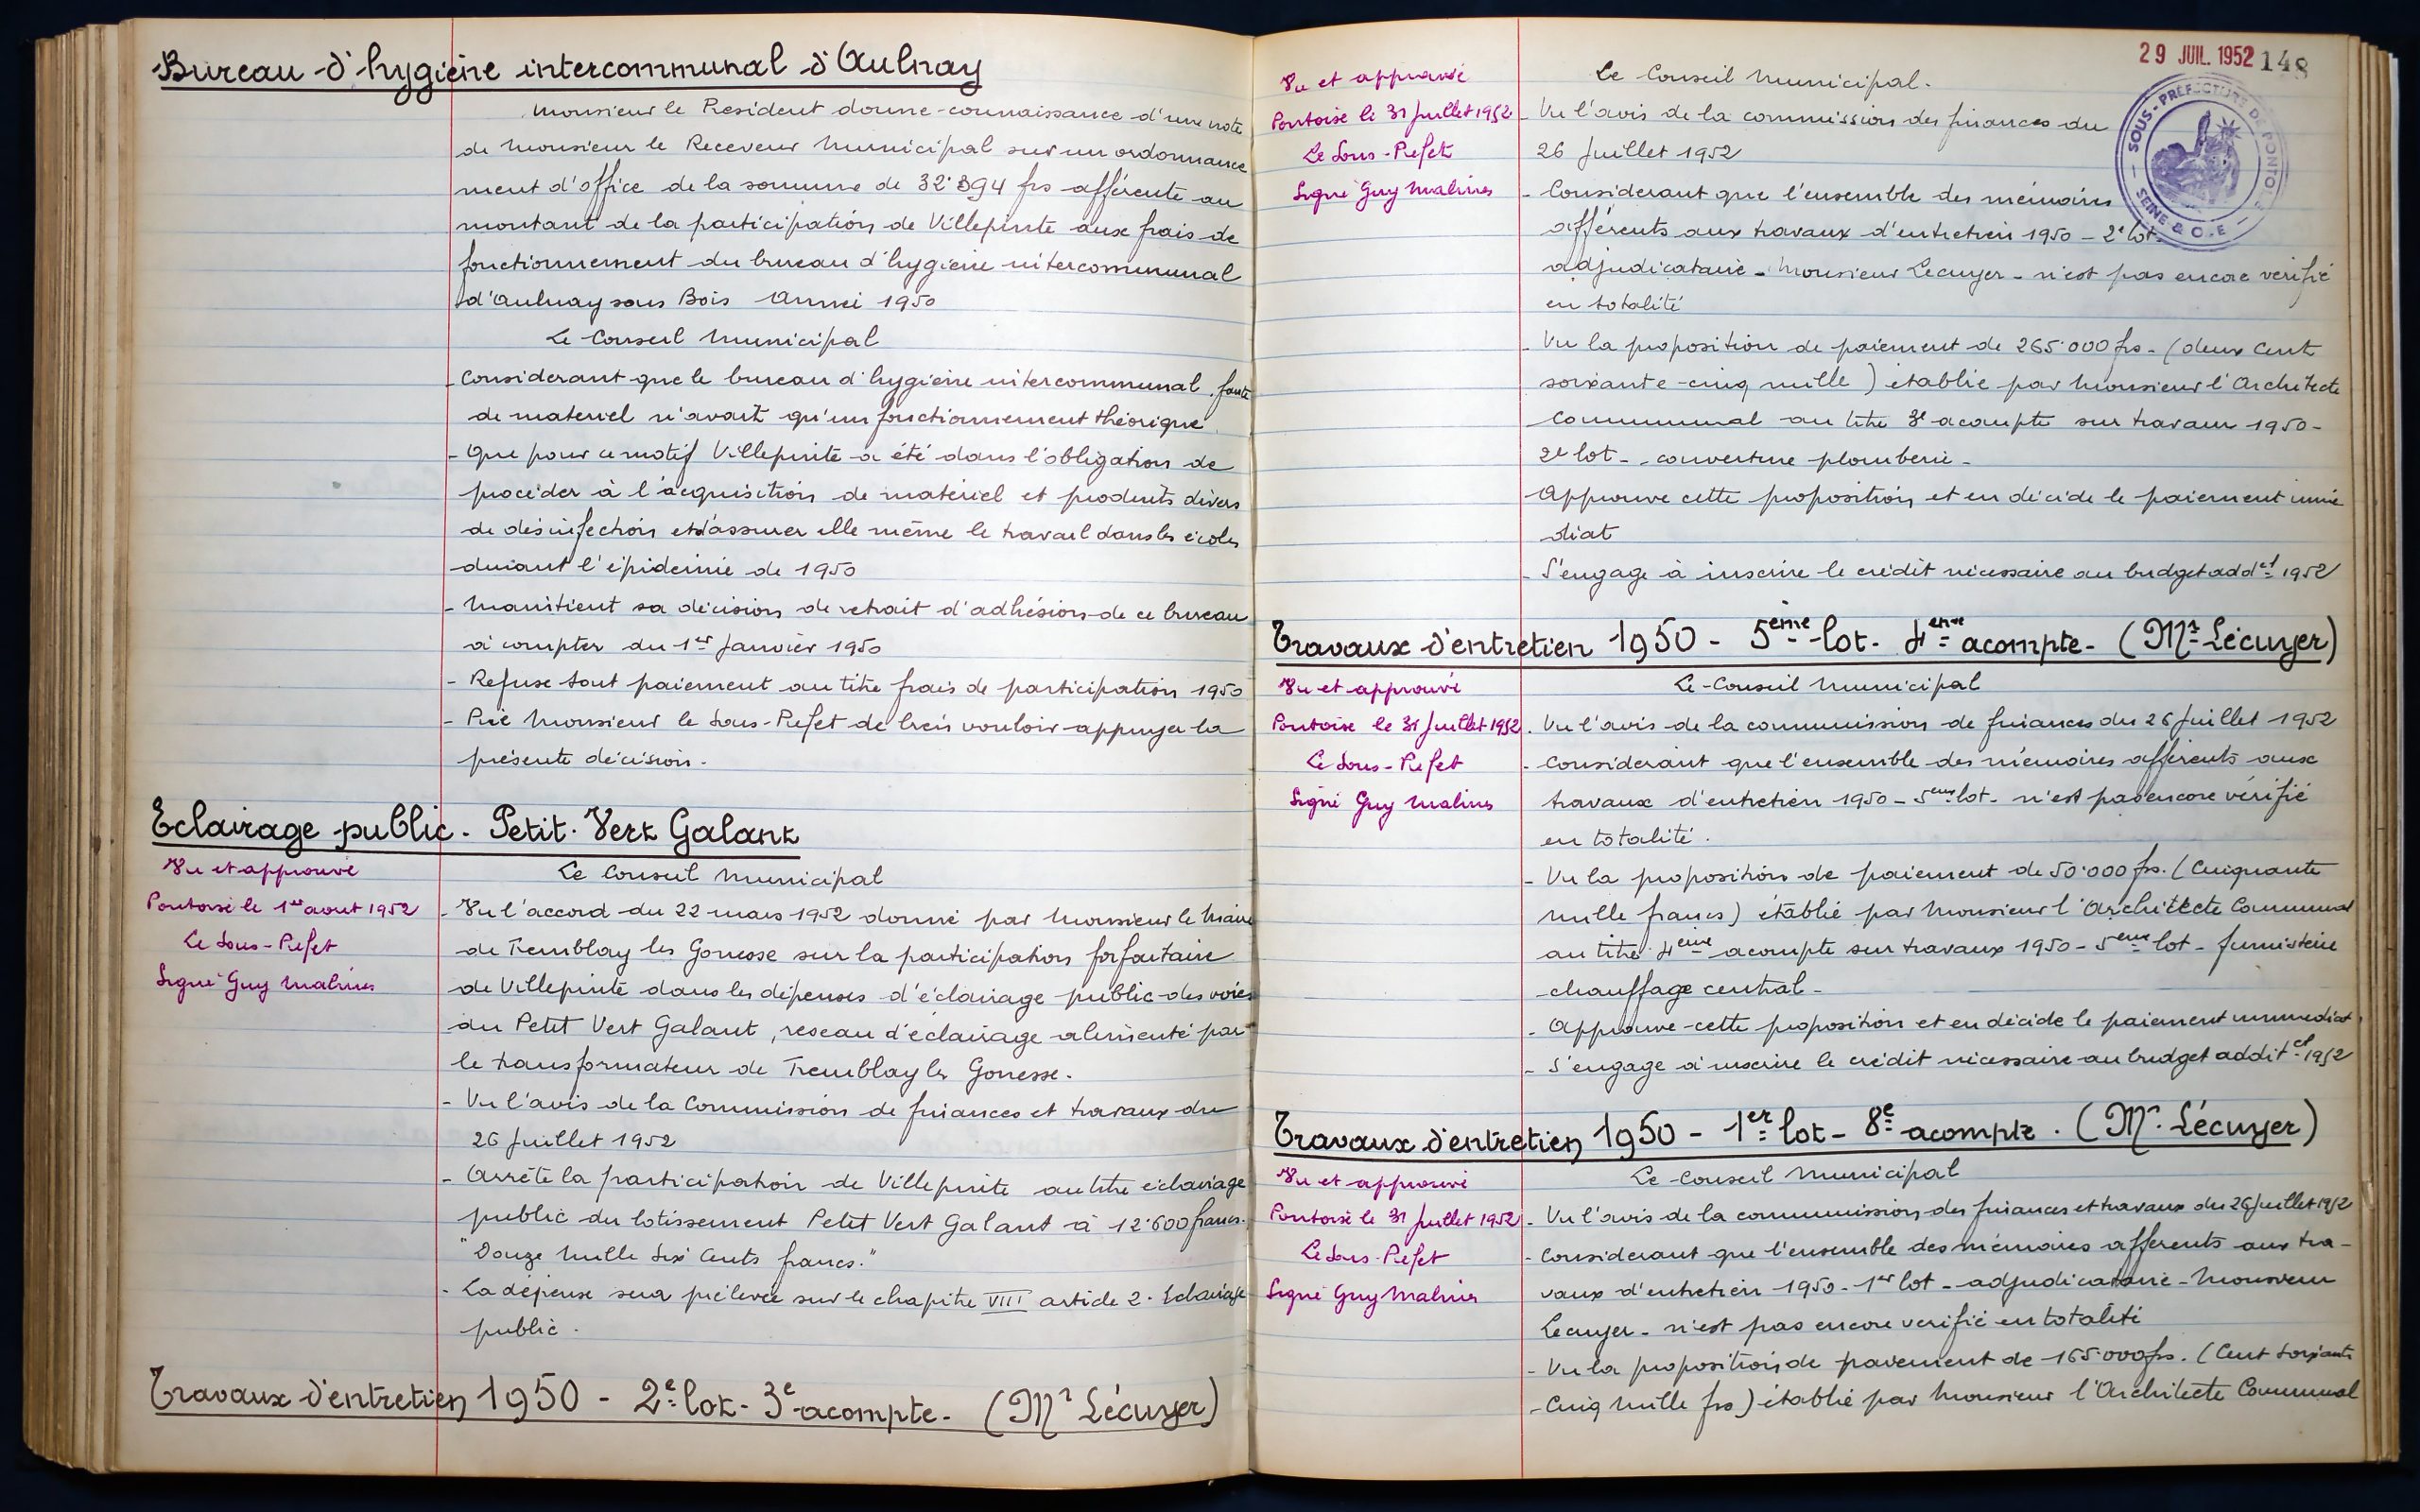 Bureau d'hygiène intercommunal d'Aulnay
Monsieur le Président donne connaissance d'une note
de Monsieur le Receveur Municipal sur un ordonnance
ment d'office de la somme de 32.394 frs afférente au
montant de la participation de Villepinte aux frais de
fonctionnement du bureau d'hygiène intercommunal
d'Aulnay sous Bois Année 1950
Le Conseil Municipal
- Considérant que le bureau d'hygiène intercommunal, faute
de matériel n'avait qu'un fonctionnement théorique
- Que pour ce motif Villepinte a été dans l'obligation de
procéder à l'acquisition de matériel et produits divers
de désinfection et d'assurer elle même le travail dans les écoles
durant l'épidémie de 1950
- Maintient sa décision de retrait d'adhésion de ce bureau
à compter du 1er Janvier 1950
- Refuse tout paiement au titre frais de participation 1950
- Prie Monsieur le Sous-Préfet de bien vouloir appuyer la
présente décision.
Eclairage public. Petit. Vert Galant
Vu et approuvé
Pontoise le 1er aout 1952
Le Sous-Préfet
Signé Guy Malines
Le Conseil Municipal
- Vu l'accord du 22 mars 1952 donné par Monsieur le Maire
de Tremblay les Gonesse sur la participation forfaitaire
de Villepinte dans les dépenses d'éclairage public des voies
du Petit Vert Galant, réseau d'éclairage alimenté par
le transformateur de Tremblay les Gonesse.
- Vu l'avis de la Commission de finances et travaux du
26 Juillet 1952
- Arrête la participation de Villepinte au titre éclairage
public du lotissement Petit Vert Galant à 12.600 francs.
"Douze Mille Six Cents francs."
- La dépense sera prélevée sur le chapitre VIII article 2. Eclairage
public.
Travaux d'entretien 1950 - 2e lot - 3e acompte - (Mr Lécuyer)
29 JUIL. 1952 148
SOUS-PRÉFECTURE DE PONTOISE
SEINE & O-E
Vu et approuvé
Pontoise le 31 Juillet 1952
Le Sous-Préfet
Signé Guy Malines
Le Conseil Municipal.
- Vu l'avis de la commission des finances du
26 Juillet 1952
- Considérant que l'ensemble des mémoires
afférents aux travaux d'entretien 1950 - 2e lot -
adjudicataire - Monsieur Lecuyer - n'est pas encore vérifié
en totalité
- Vu la proposition de paiement de 265.000 frs - (deux Cent
soixante-cinq mille) établie par Monsieur l'Architecte
Communal au titre 3e acompte sur travaux 1950 -
2e lot - couverture plomberie -
- Approuve cette proposition et en décide le paiement immé
diat
- S'engage à inscrire le crédit nécessaire au budget addel 1952
Travaux d'entretien 1950 - 5ème lot - 4ème acompte - (Mr Lécuyer)
Vu et approuvé
Pontoise le 31 Juillet 1952
Le Sous-Préfet
Signé Guy Malines
Le Conseil Municipal
- Vu l'avis de la commission de finances du 26 Juillet 1952
- Considérant que l'ensemble des mémoires afférents aux
travaux d'entretien 1950 - 5ème lot - n'est pas encore vérifié
en totalité.
- Vu la proposition de paiement de 50.000 frs. (Cinquante
mille francs) établie par Monsieur l'Architecte Communal
au titre 4ème acompte sur travaux 1950 - 5ème lot - fumisterie
chauffage central -
- Approuve cette proposition et en décide le paiement immédiat.
- S'engage à inscrire le crédit nécessaire au budget addit.el 1952
Travaux d'entretien 1950 - 1er lot - 8e acompte. (Mr. Lécuyer)
Vu et approuvé
Pontoise le 31 Juillet 1952
Le Sous-Préfet
Signé Guy Malines
Le Conseil Municipal
- Vu l'avis de la commission des finances et travaux du 26 Juillet 1952
- Considérant que l'ensemble des mémoires afférents aux tra-
vaux d'entretien 1950 - 1er lot - adjudicataire - Monsieur
Lecuyer - n'est pas encore vérifié en totalité
- Vu la proposition de paiement de 165.000 frs. (Cent soixante
Cinq Mille frs) établie par Monsieur l'Architecte Communal